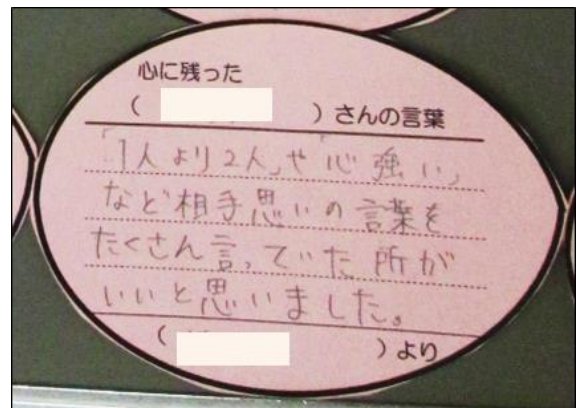 心に残った
(　　　　)さんの言葉
「1人より2人」や「心強い」
など相手思いの言葉を
たくさん言っていた所が
いいと思いました。
(　　　　)より